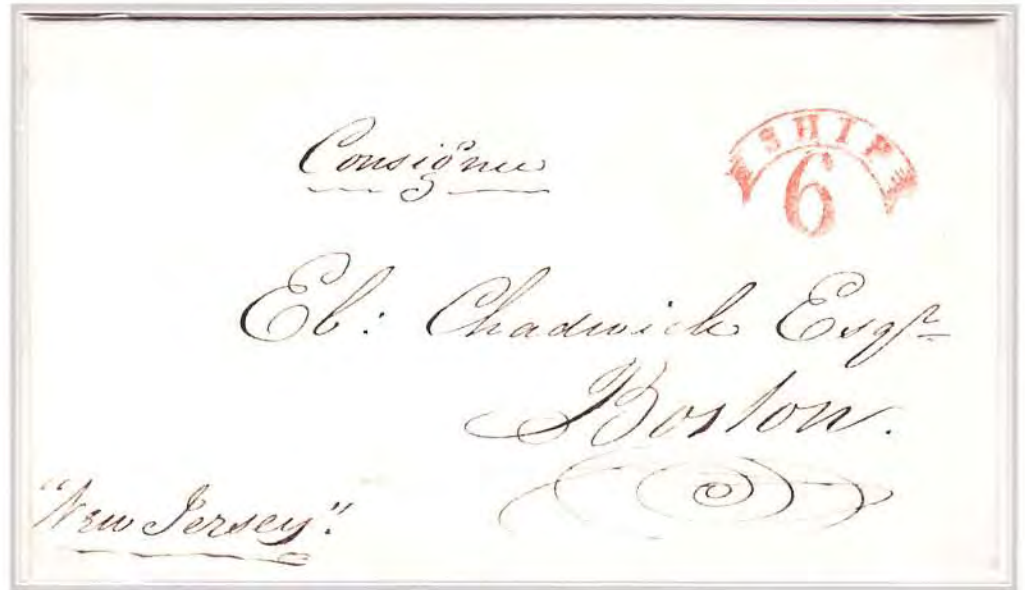 Consignee
SHIP
6
Eb: Chadwick Esqr
Boston.
"New Jersey".